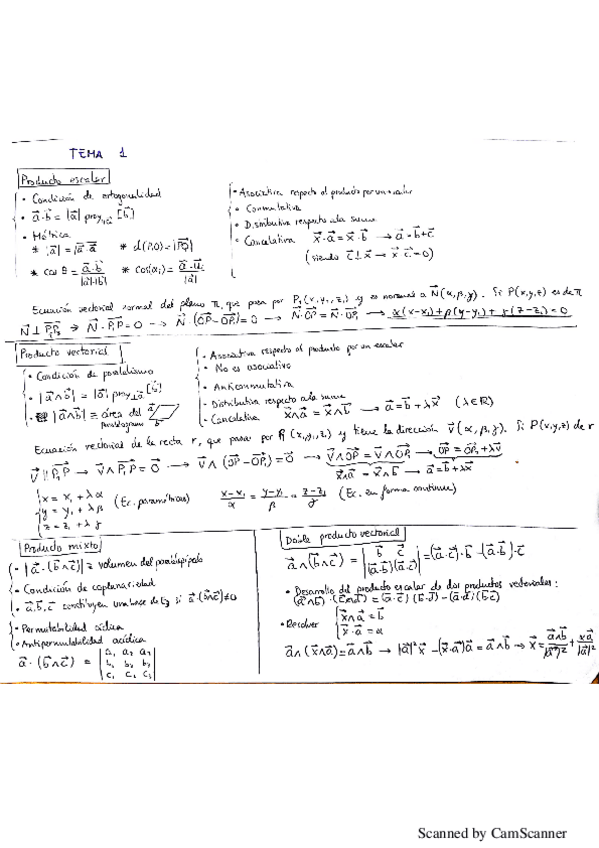 TEMA 1
Producto escalar
• Condición de ortogonalidad
• a⃗·b⃗ = |a⃗| proy [b⃗]
• Métrica
* |a⃗| = √a⃗·a⃗ * d(P,Q) = |PQ⃗|
* cos θ = a⃗·b⃗ / |a⃗|·|b⃗| * cos(αi) = a⃗·u⃗i / |a⃗|
• Asociativa respecto al producto por un escalar
• Conmutativa
• Distributiva respecto a la suma
• Cancelativa x⃗·a⃗ = x⃗·b⃗ → a⃗ = b⃗ + c⃗
(siendo c⃗ ⊥ x⃗ → x⃗·c⃗ = 0)
Ecuación vectorial normal del plano π, que pasa por P₁(x₁,y₁,z₁) y es normal a N⃗(α,β,γ). Si P(x,y,z) es de π
N⃗ ⊥ P₁P⃗ → N⃗·P₁P⃗ = 0 → N⃗·(OP⃗ - OP₁⃗) = 0 → N⃗·OP⃗ = N⃗·OP₁⃗ → α(x-x₁)+β(y-y₁)+γ(z-z₁)=0
Producto vectorial
• Condición de paralelismo
• |a⃗∧b⃗| = |a⃗| proy⊥a⃗ [b⃗]
• |a⃗∧b⃗| ≡ área del paralelogramo a⃗ b⃗
• Asociativa respecto al producto por un escalar
• No es asociativo
• Anticonmutativa
- Distributiva respecto a la suma
- Cancelativa x⃗∧a⃗ = x⃗∧b⃗ → a⃗ = b⃗ + λx⃗ (λ∈ℝ)
Ecuación vectorial de la recta r, que pasa por P₁(x₁,y₁,z₁) y tiene la dirección v⃗(α,β,γ). Si P(x,y,z) de r
v⃗ ∥ P₁P⃗ → v⃗∧P₁P⃗ = 0⃗ → v⃗∧(OP⃗ - OP₁⃗) = 0⃗ → v⃗∧OP⃗ = v⃗∧OP₁⃗ → OP⃗ = OP₁⃗ + λv⃗
x⃗∧a⃗ = x⃗∧b⃗ → a⃗ = b⃗ + λx⃗
x = x₁ + λα
y = y₁ + λβ (Ec. paramétricas)
z = z₁ + λγ
x-x₁/α = y-y₁/β = z-z₁/γ (Ec. en forma continua)
Producto mixto
• |a⃗·(b⃗∧c⃗)| ≡ volumen del paralelepípedo
• Condición de coplanaridad
• a⃗,b⃗,c⃗ constituyen una base de E₃ si a⃗·(b⃗∧c⃗)≠0
• Permutabilidad cíclica
• Antipermutabilidad acíclica
a⃗·(b⃗∧c⃗) = |a₁ a₂ a₃
b₁ b₂ b₃
c₁ c₂ c₃|
Doble producto vectorial
a⃗∧(b⃗∧c⃗) = |b⃗ c⃗
(a⃗·b⃗) (a⃗·c⃗)| = (a⃗·c⃗)·b⃗ - (a⃗·b⃗)·c⃗
• Desarrollo del producto escalar de dos productos vectoriales:
(a⃗∧b⃗)·(c⃗∧d⃗) = (a⃗·c⃗)(b⃗·d⃗) - (a⃗·d⃗)(b⃗·c⃗)
• Resolver x⃗∧a⃗ = b⃗
x⃗·a⃗ = α
a⃗∧(x⃗∧a⃗) = a⃗∧b⃗ → |a⃗|²x⃗ - (x⃗·a⃗)a⃗ = a⃗∧b⃗ → x⃗ = a⃗∧b⃗/|a⃗|² + αa⃗/|a⃗|²
Scanned by CamScanner